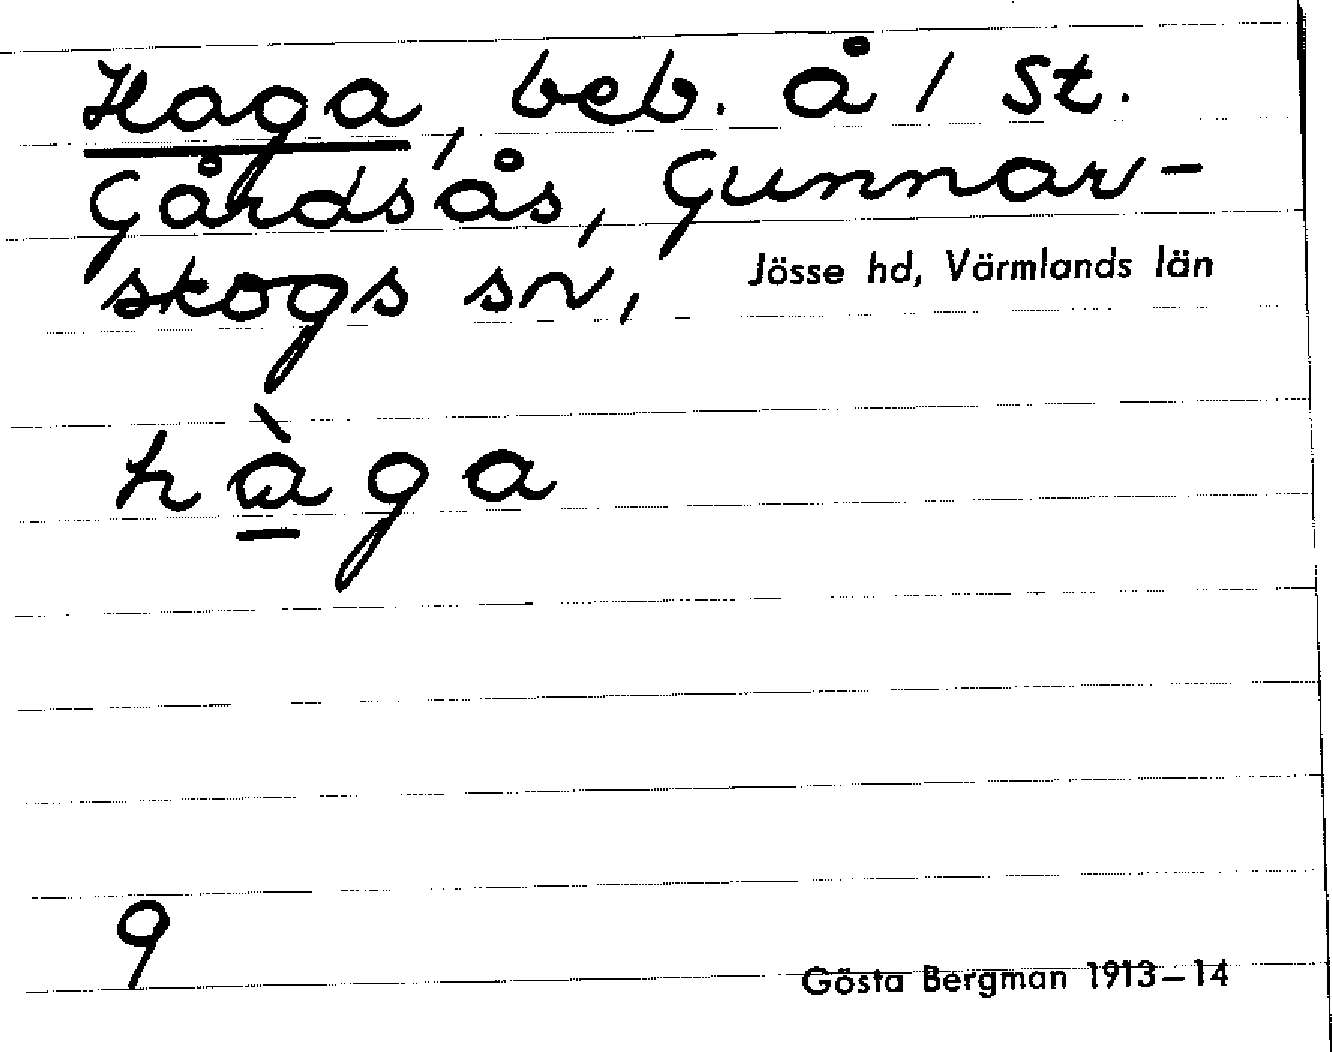 Haga, beb. å / St.
Gårdsås, Gunnar-
skogs sn, Jösse hd, Värmlands län
hàga
9
Gösta Bergman 1913–14